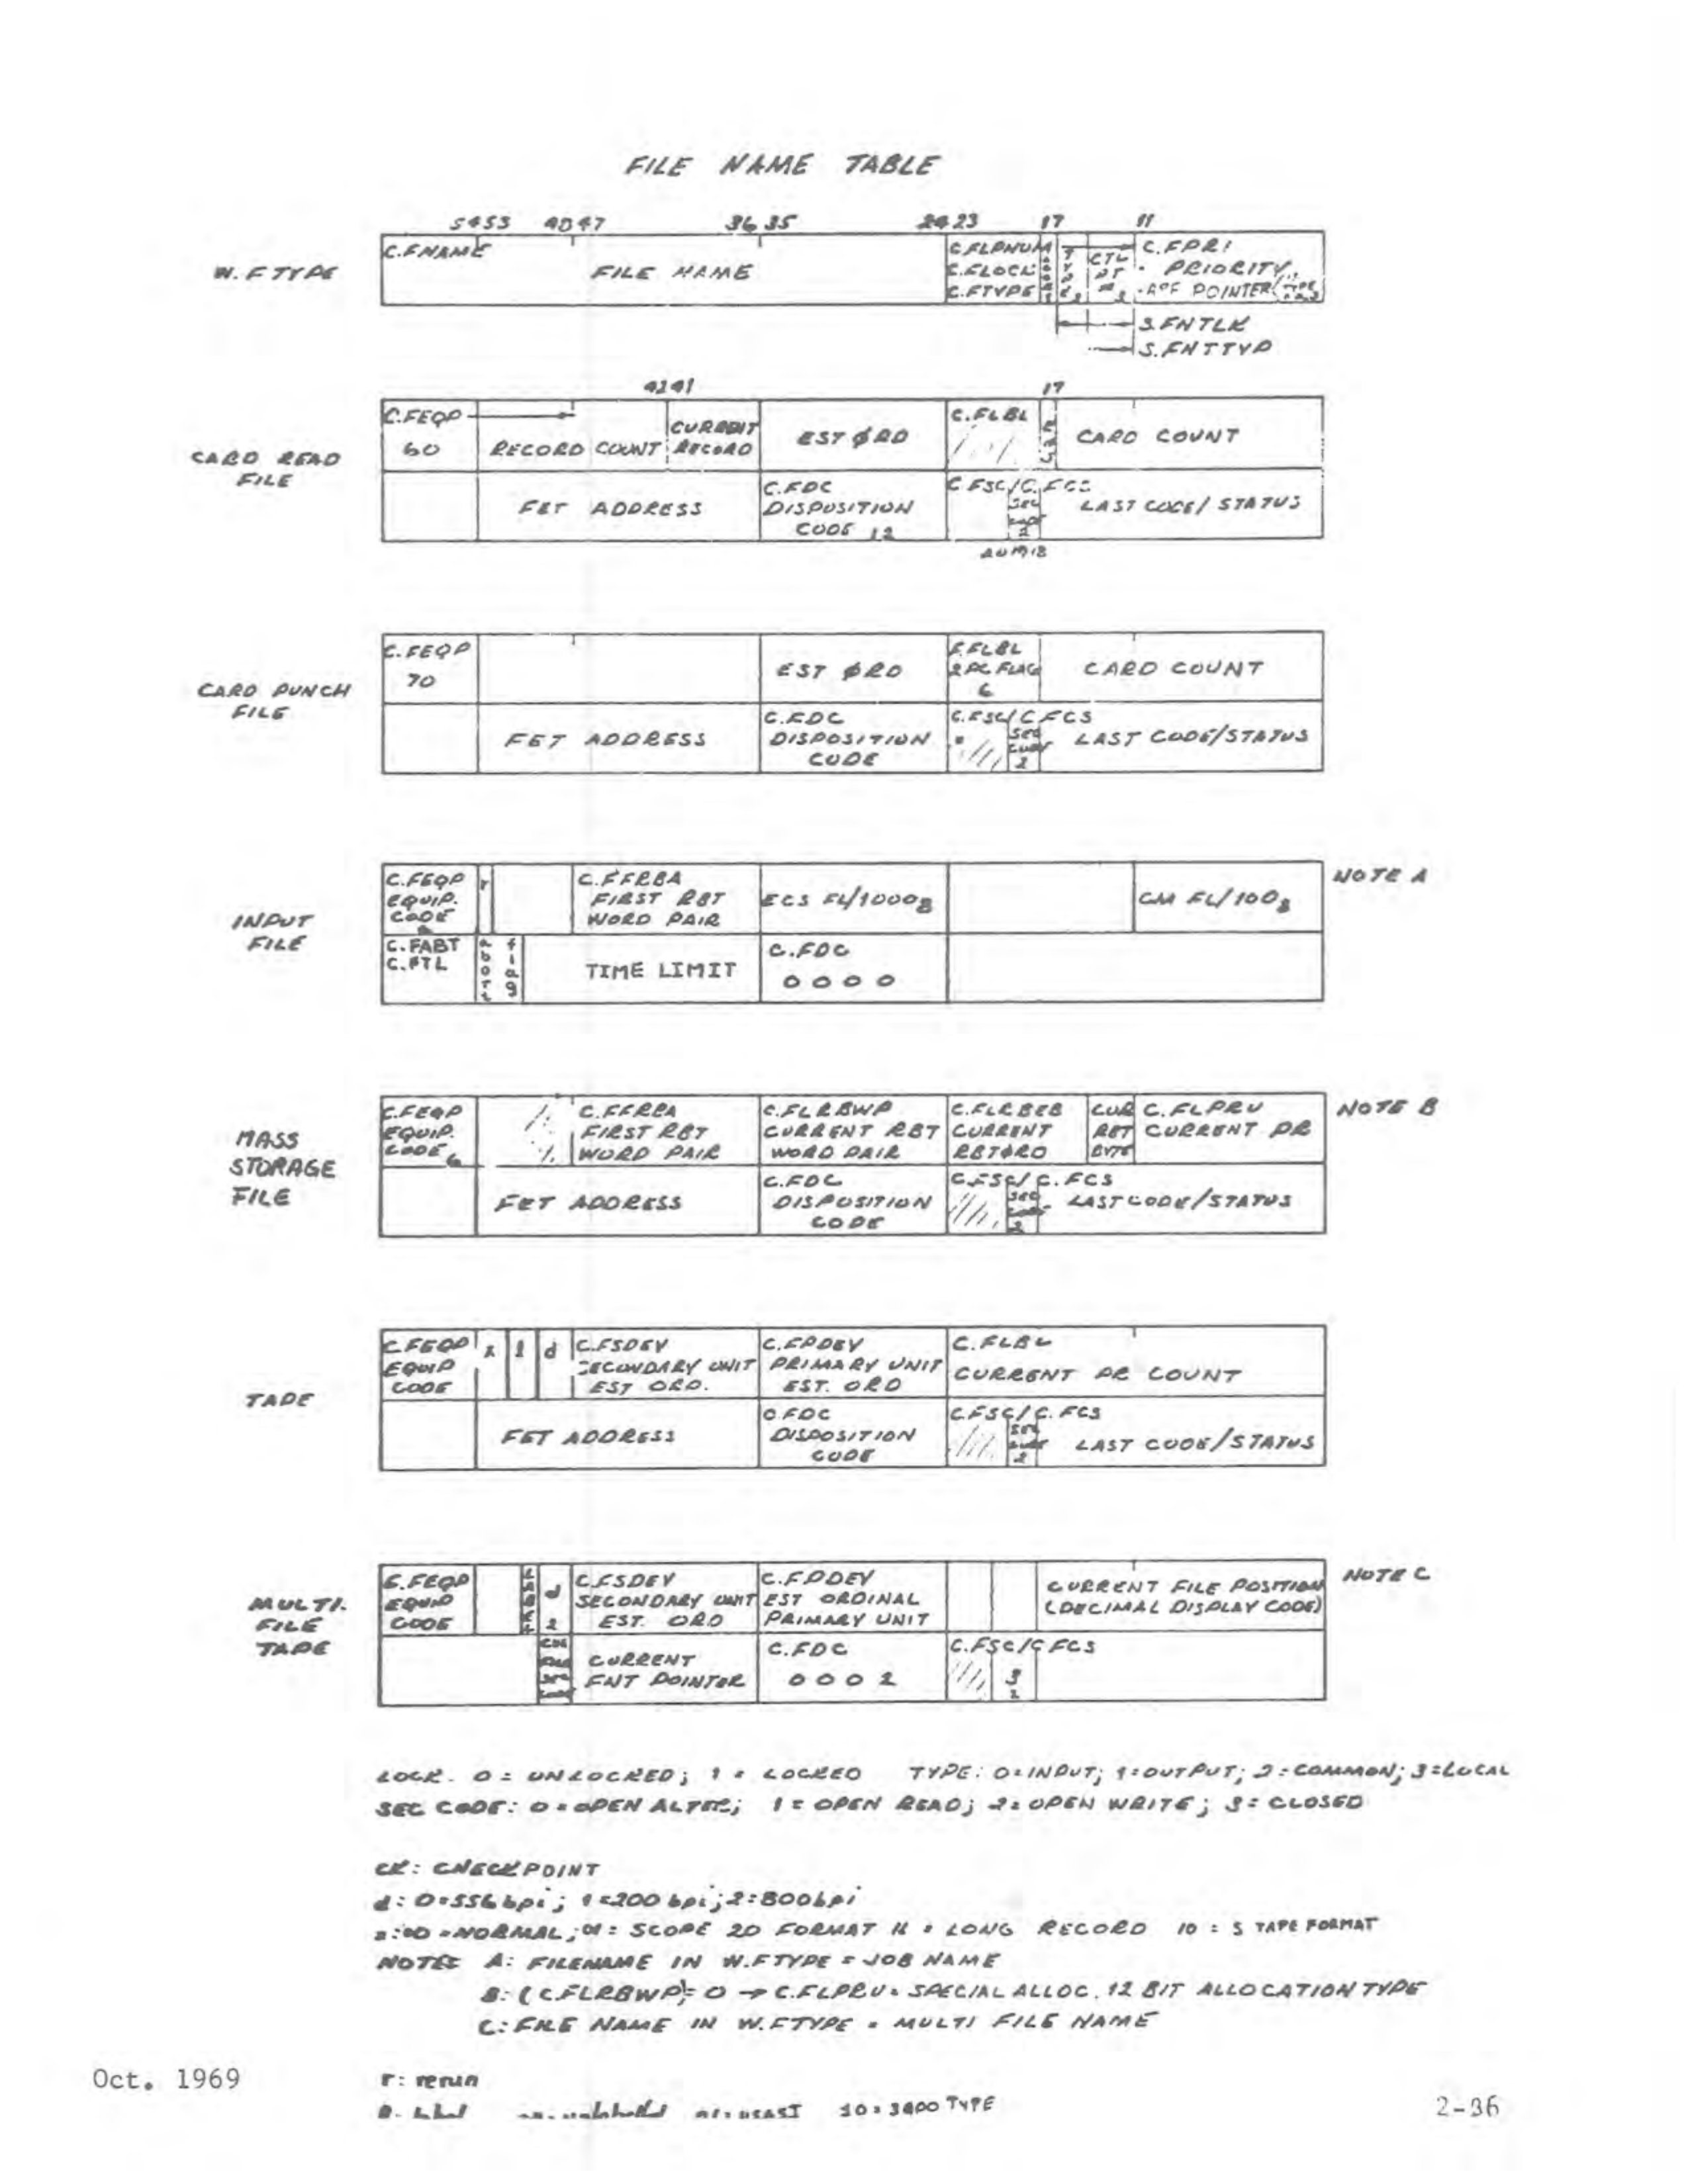 FILE NAME TABLE
5453 4847 36 35 2423 17 11
W.FTYPE
C.FNAME
FILE NAME
C.FLPNUM
C.FLOCK
C.FTYPE
CTL
PT
C.FPRI
PRIORITY
POINTER
S.FNTLK
S.FNTTYP
4241 17
CARD READ
FILE
C.FEQP
60
RECORD COUNT
CURRENT
RECORD
EST ØRD
C.FLBL
CARD COUNT
FET ADDRESS
C.FDC
DISPOSITION
CODE 12
C.FSC/C.FCS
SEC
2
LAST CODE/STATUS
CARD PUNCH
FILE
C.FEQP
70
EST ØRD
C.FLBL
FLAG
6
CARD COUNT
FET ADDRESS
C.FDC
DISPOSITION
CODE
C.FSC/C.FCS
SEC
CODE
2
LAST CODE/STATUS
INPUT
FILE
C.FEQP
EQUIP.
CODE
r
C.FFRBA
FIRST RBT
WORD PAIR
ECS FL/10008
CM FL/1008
NOTE A
C.FABT
C.FTL
abort
flag
TIME LIMIT
C.FDC
0 0 0 0
MASS
STORAGE
FILE
C.FEQP
EQUIP.
CODE 6
C.FFRBA
FIRST RBT
WORD PAIR
C.FLRBWP
CURRENT RBT
WORD PAIR
C.FLRBEB
CURRENT
RBTØRD
CUR
RBT
BYTE
C.FLPRU
CURRENT PR
NOTE B
FET ADDRESS
C.FDC
DISPOSITION
CODE
C.FSC/C.FCS
SEC
CODE
2
LAST CODE/STATUS
TAPE
C.FEQP
EQUIP
CODE
x
l
d
C.FSDEV
SECONDARY UNIT
EST ORD.
C.FPDEV
PRIMARY UNIT
EST. ORD
C.FLBL
CURRENT PR COUNT
FET ADDRESS
C.FDC
DISPOSITION
CODE
C.FSC/C.FCS
SEC
CODE
2
LAST CODE/STATUS
MULTI.
FILE
TAPE
C.FEQP
EQUIP
CODE
LABEL
d
2
C.FSDEV
SECONDARY UNIT
EST. ORD
C.FPDEV
EST ORDINAL
PRIMARY UNIT
CURRENT FILE POSITION
(DECIMAL DISPLAY CODE)
NOTE C
CURRENT
FNT POINTER
C.FDC
0 0 0 2
C.FSC/C.FCS
LOCK. 0 = UNLOCKED; 1 = LOCKED TYPE: 0=INPUT; 1=OUTPUT; 2=COMMON; 3=LOCAL
SEC CODE: 0=OPEN ALTER; 1=OPEN READ; 2=OPEN WRITE; 3=CLOSED
CK: CHECKPOINT
d: 0=556 bpi; 1=200 bpi; 2=800bpi
x:00=NORMAL; 01= SCOPE 20 FORMAT 11 = LONG RECORD 10 = S TAPE FORMAT
NOTE: A: FILENAME IN W.FTYPE = JOB NAME
B: (C.FLRBWP)=0 → C.FLPRU= SPECIAL ALLOC. 12 BIT ALLOCATION TYPE
C: FILE NAME IN W.FTYPE = MULTI FILE NAME
Oct. 1969
r: rerun
l. label 00. unlabelled 01: USASI 10: 3400 TYPE
2-36